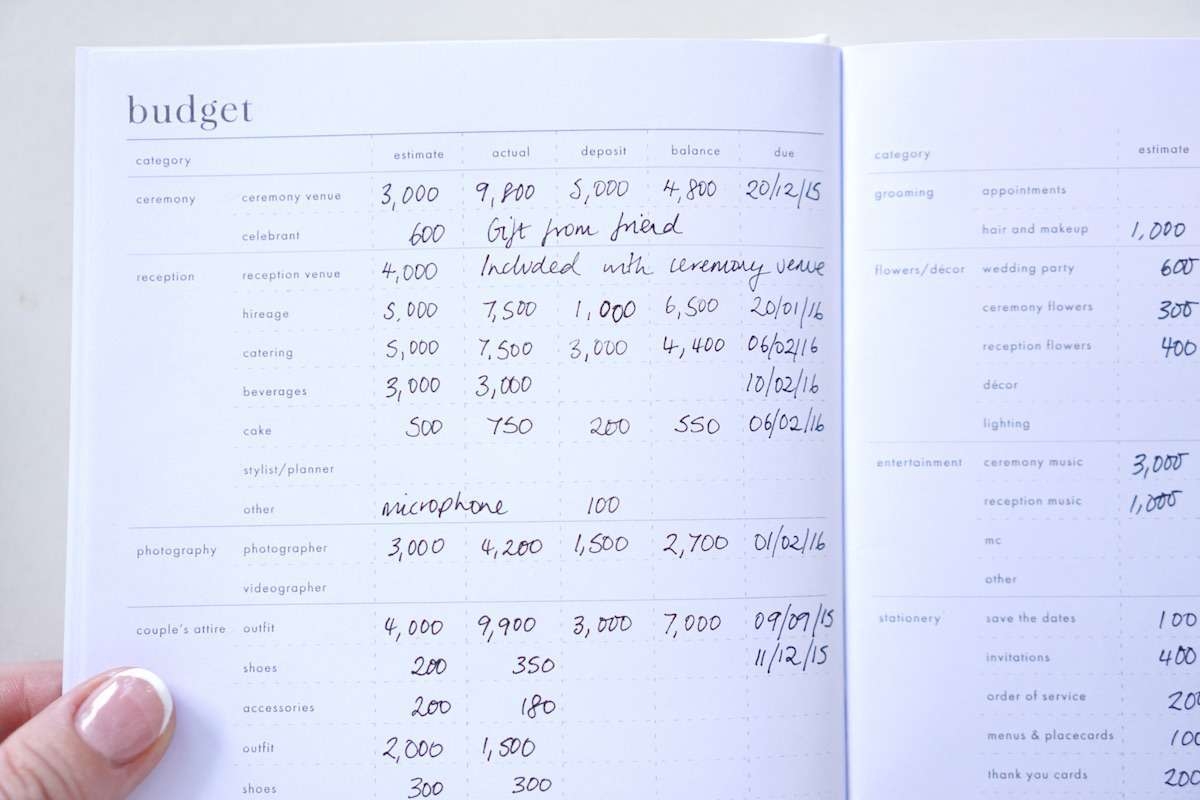 budget
category estimate actual deposit balance due
ceremony ceremony venue 3,000 9,800 5,000 4,800 20/12/15
celebrant 600 Gift from friend
reception reception venue 4,000 Included with ceremony venue
hireage 5,000 7,500 1,000 6,500 20/01/16
catering 5,000 7,500 3,000 4,400 06/02/16
beverages 3,000 3,000 10/02/16
cake 500 750 200 550 06/02/16
stylist/planner
other microphone 100
photography photographer 3,000 4,200 1,500 2,700 01/02/16
videographer
couple's attire outfit 4,000 9,900 3,000 7,000 09/09/15
shoes 200 350 11/12/15
accessories 200 180
outfit 2,000 1,500
shoes 300 300
category estimate
grooming appointments
hair and makeup 1,000
flowers/décor wedding party 600
ceremony flowers 300
reception flowers 400
décor
lighting
entertainment ceremony music 3,000
reception music 1,000
mc
other
stationery save the dates 100
invitations 400
order of service 200
menus & placecards 100
thank you cards 200